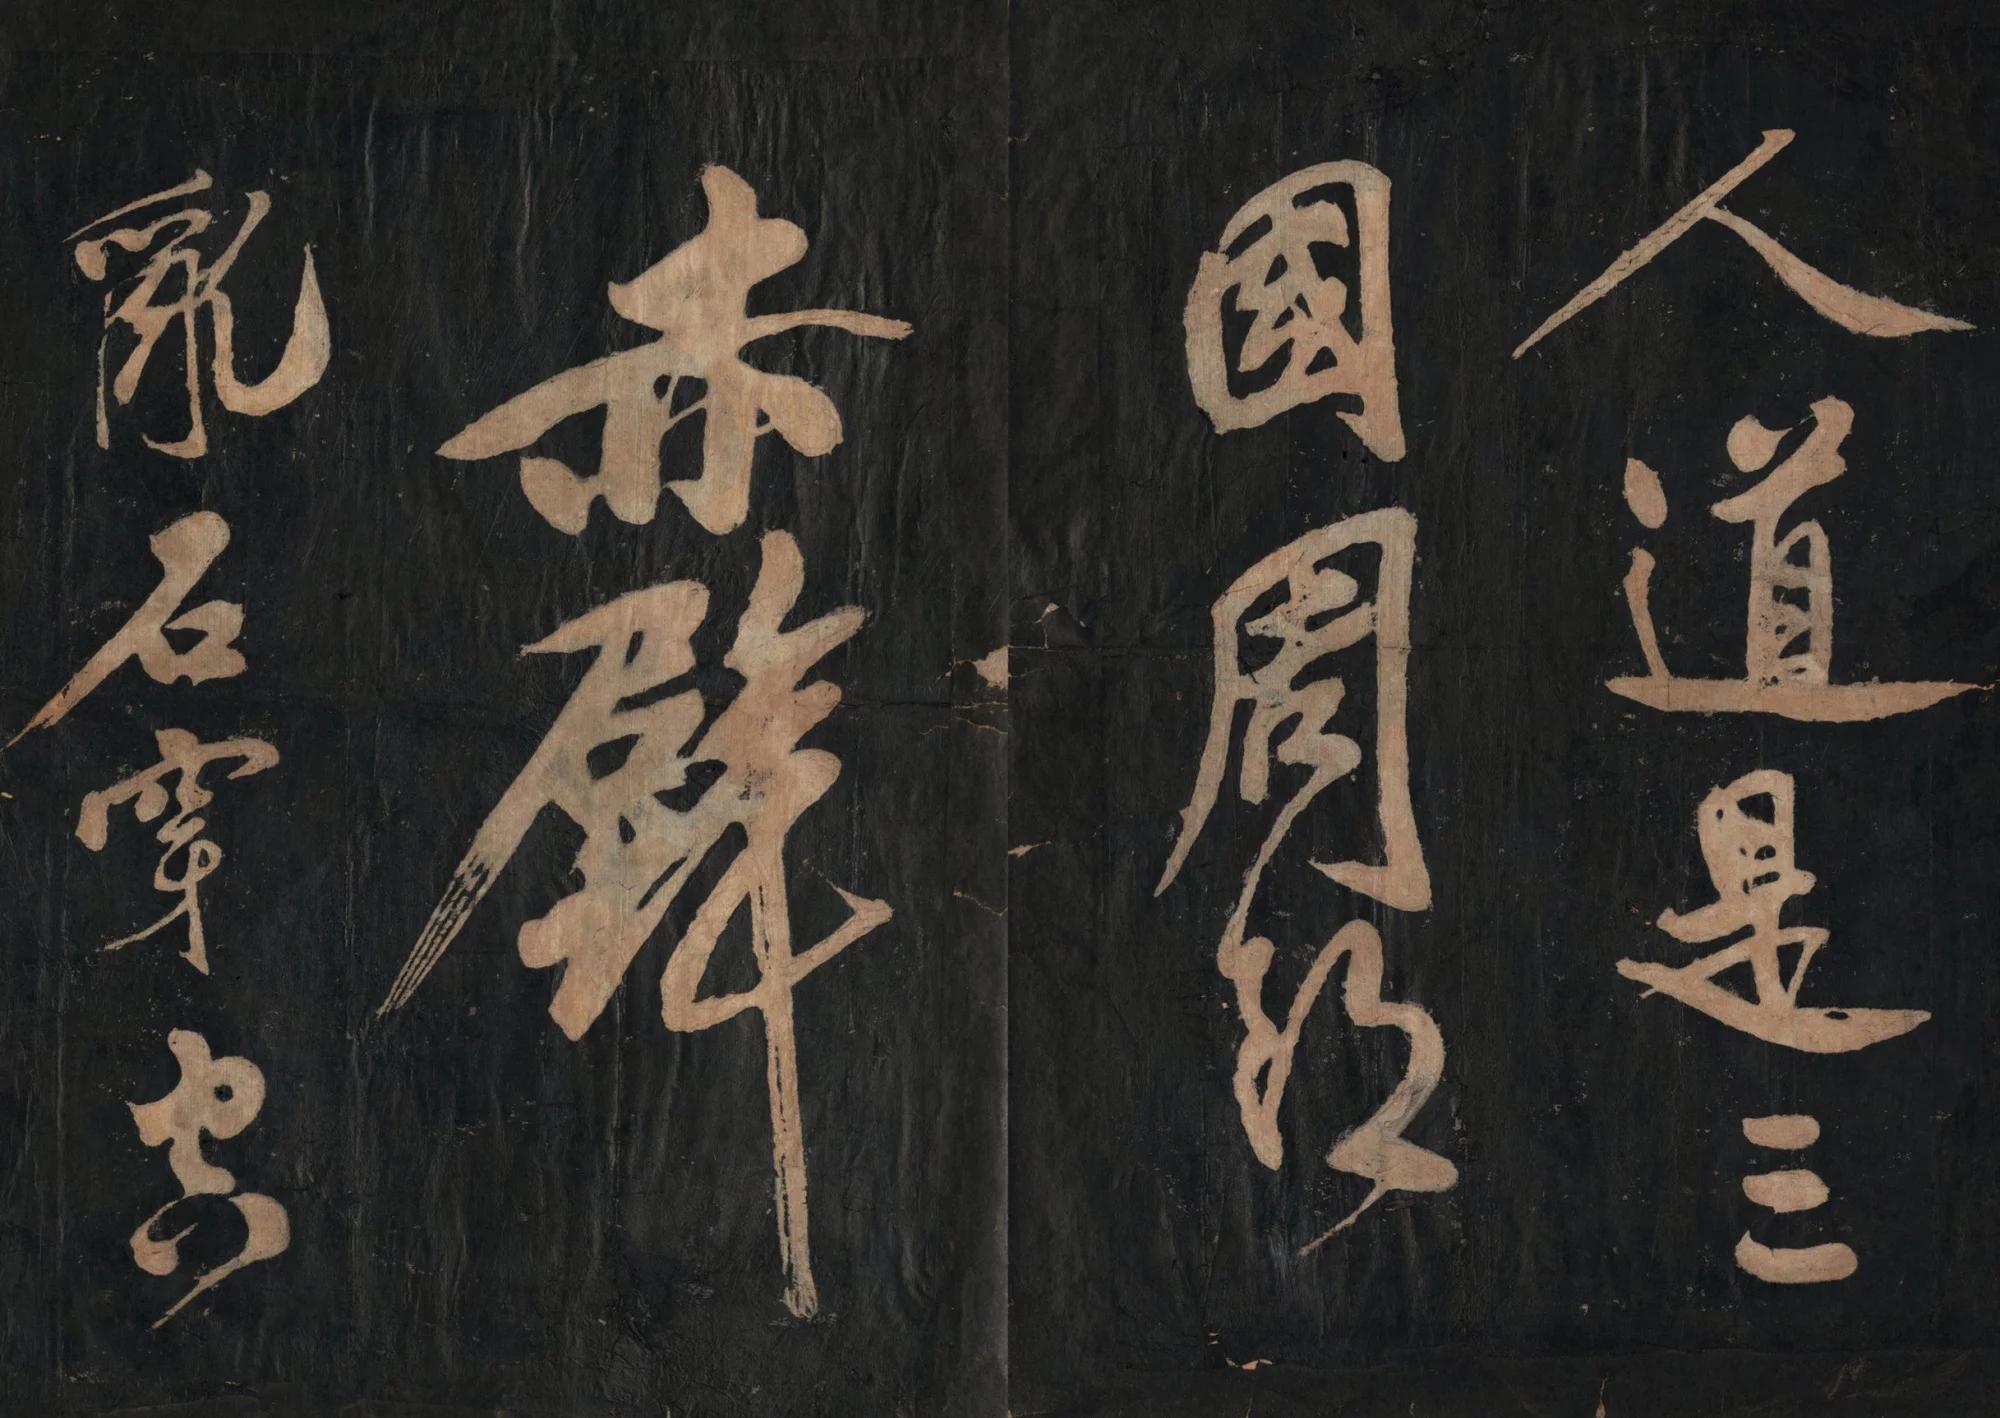 人道是三
國周郎
赤壁
亂石穿空